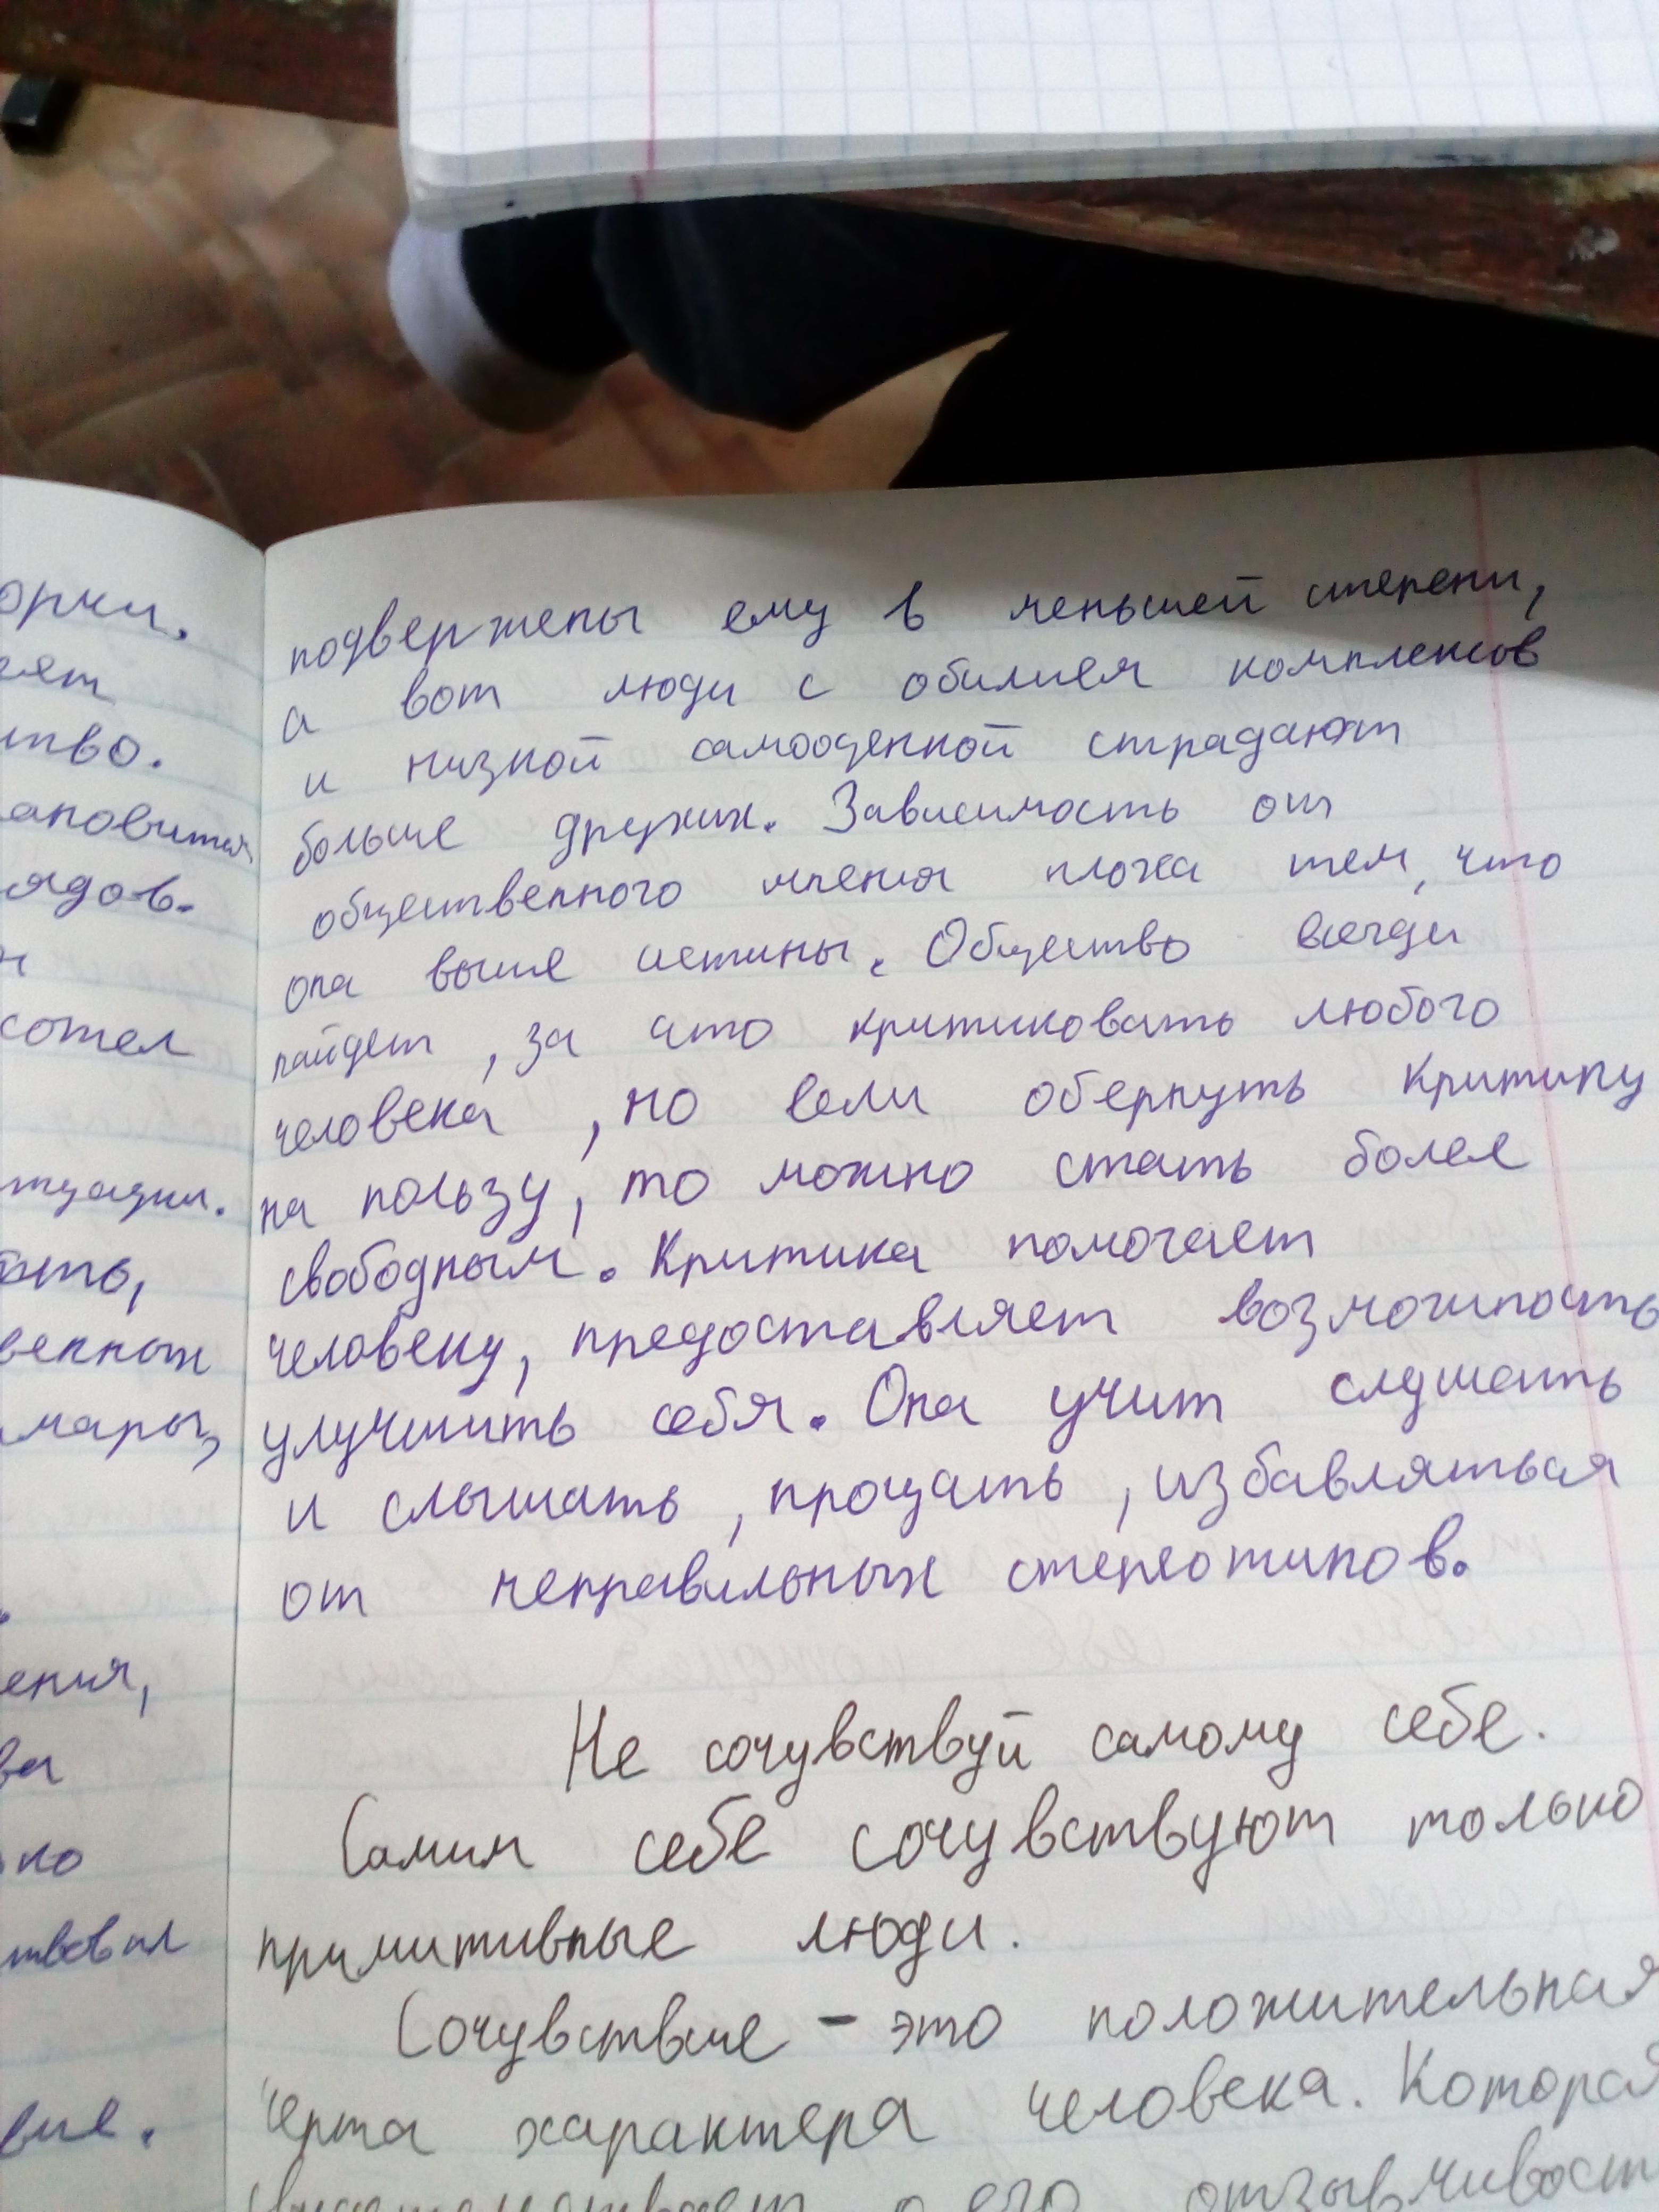 орки.
ят
тво.
ановится
ядов.
сотел
туации.
ать,
венных
мары,
ения,
ва
но
твовал
вие.
подвержены ему в меньшей степени,
а вот люди с обилием комплексов
и низкой самооценкой страдают
больше других. Зависимость от
общественного мнения плоха тем, что
она выше истины. Общество всегда
найдет, за что критиковать любого
человека, но если обернуть критику
на пользу, то можно стать более
свободным. Критика помогает
человеку, предоставляет возможность
улучшить себя. Она учит слушать
и слышать, прощать, избавляться
от неправильных стереотипов.
Не сочувствуй самому себе.
Самим себе сочувствуют только
примитивные люди.
Сочувствие - это положительная
черта характера человека. Которая
свидетельствует о его отзывчивост